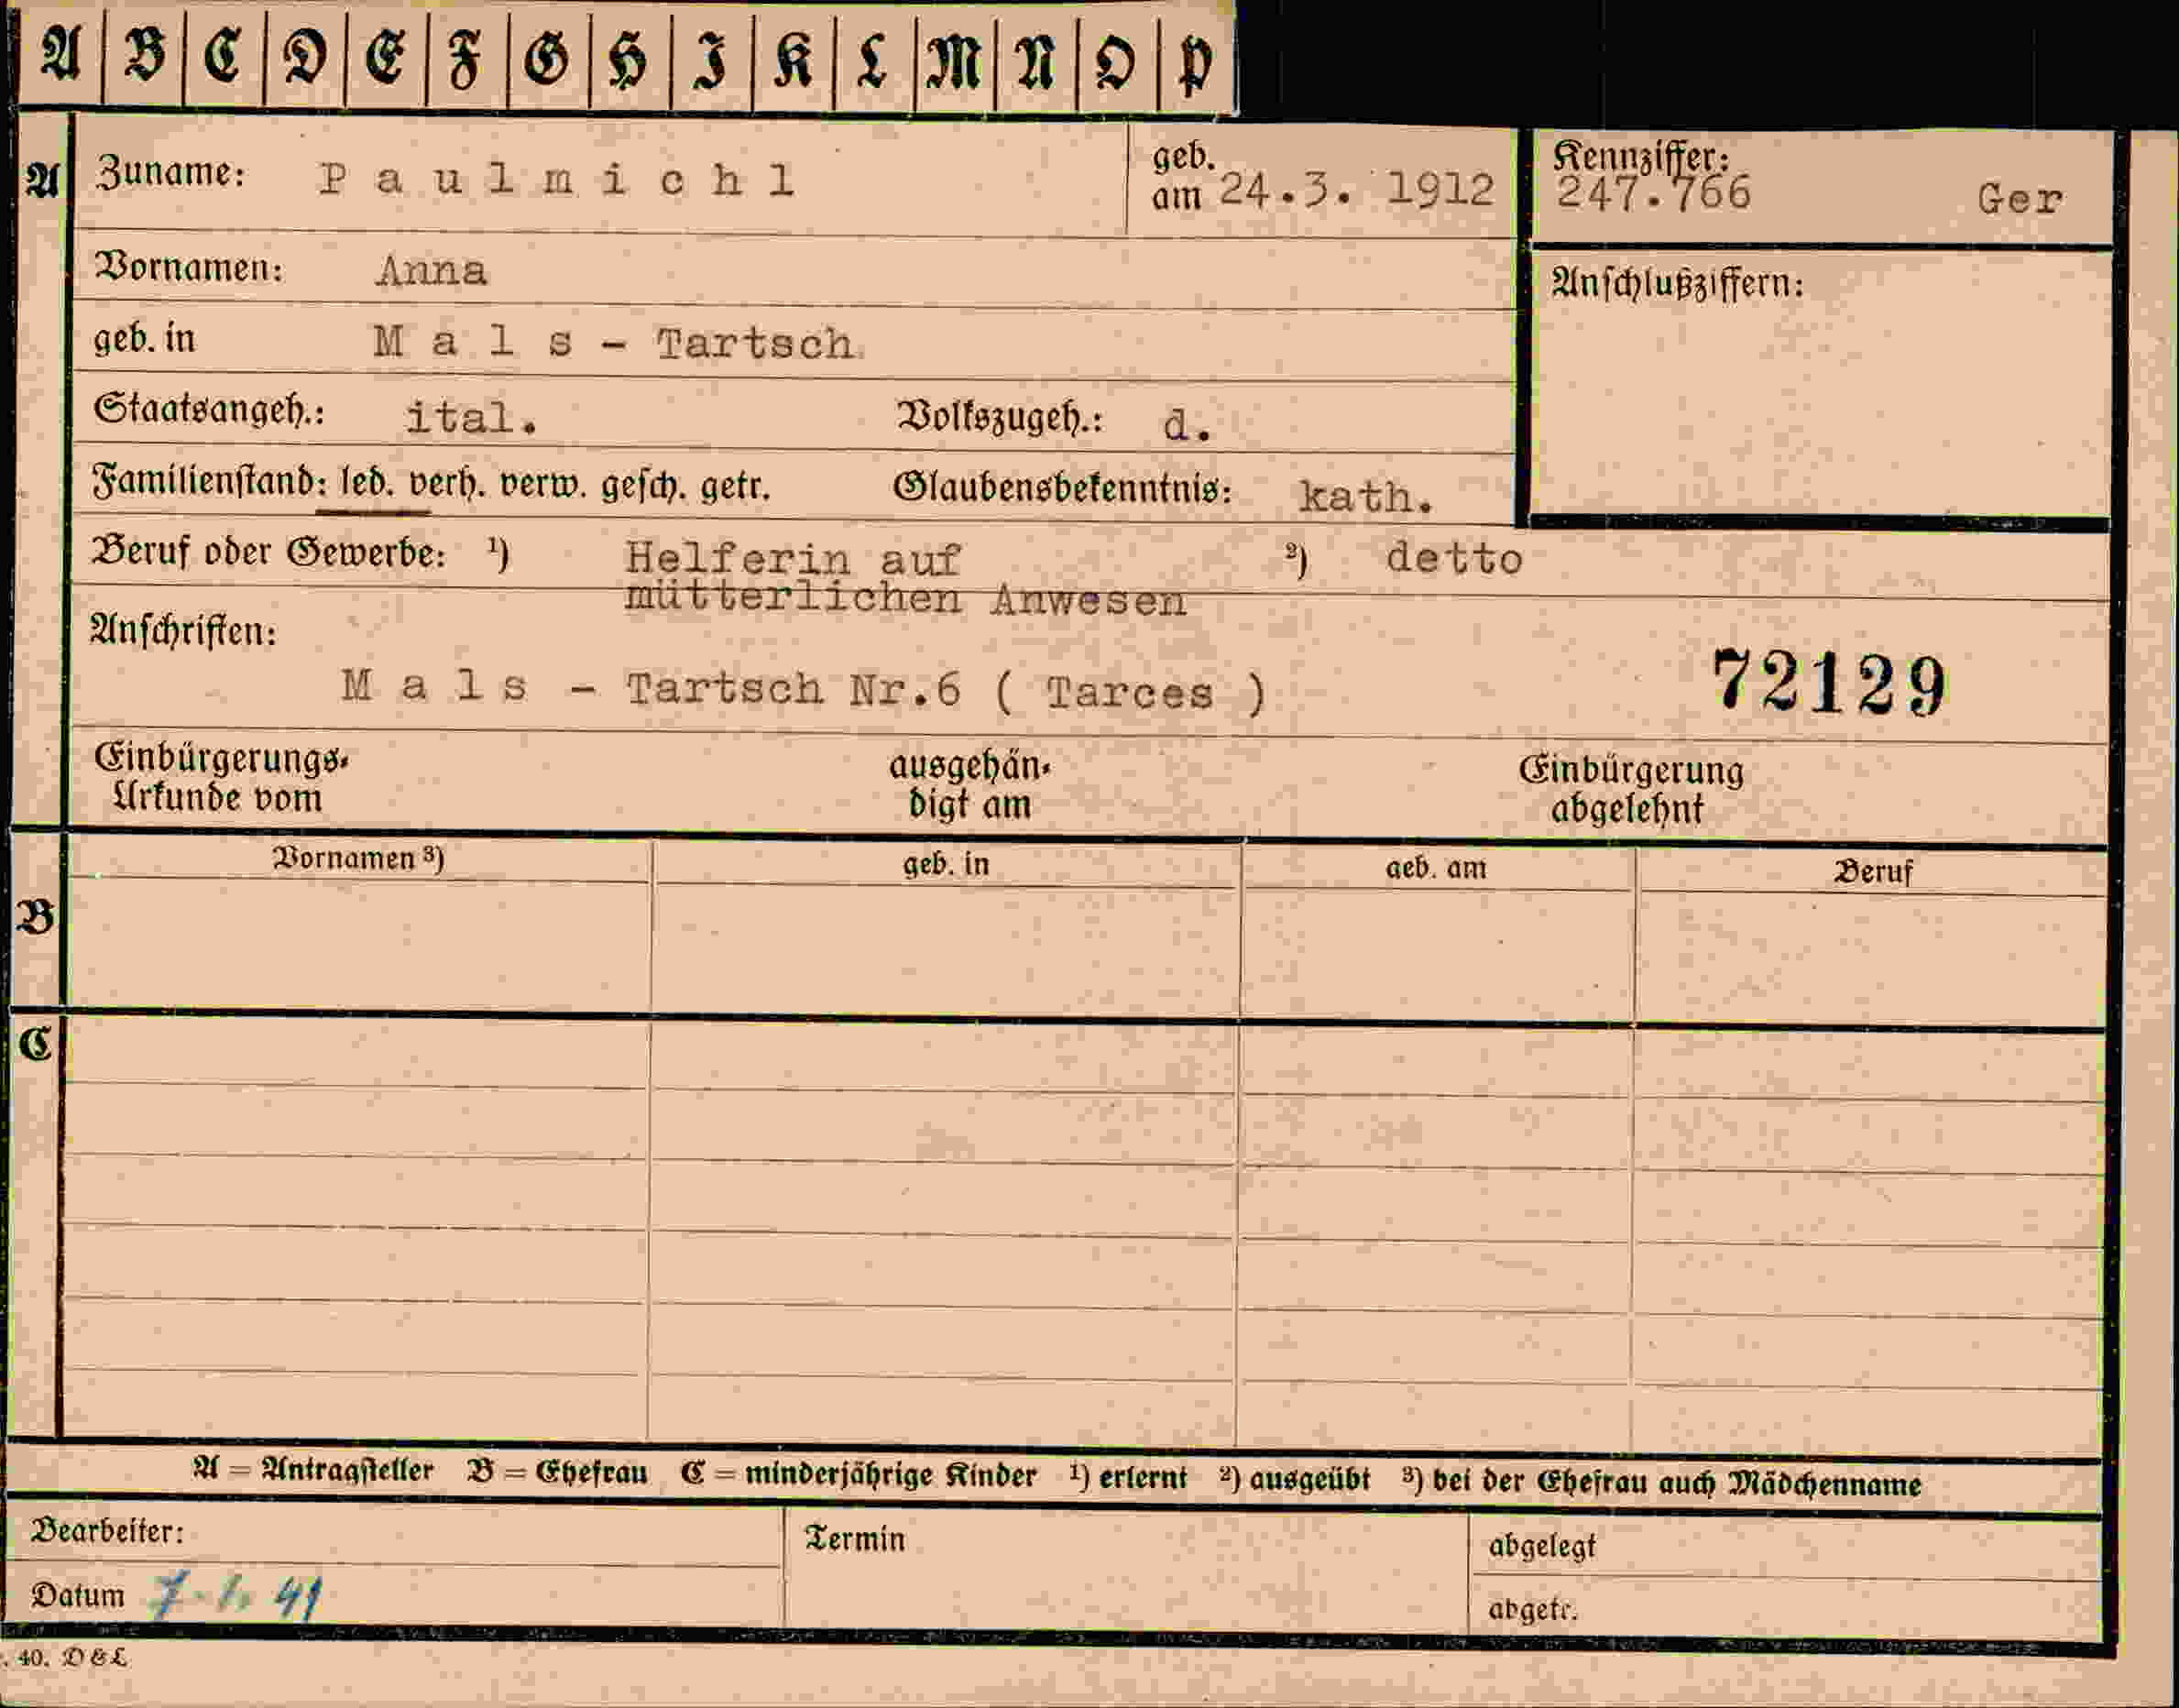 A B C D E F G H I K L M N O P
A Zuname: Paulmichl geb. am 24.3. 1912 Kennziffer: 247.766 Ger
Vornamen: Anna Anschlußziffern:
geb. in Mals - Tartsch
Staatsangeh.: ital. Volkszugeh.: d.
Familienstand: led. verh. verw. gesch. getr. Glaubensbekenntnis: kath.
Beruf oder Gewerbe: ¹) Helferin auf ²) detto
mütterlichen Anwesen
Anschriften:
Mals - Tartsch Nr.6 ( Tarces ) 72129
Einbürgerungs- ausgehän- Einbürgerung
Urkunde vom digt am abgelehnt
Vornamen ³) geb. in geb. am Beruf
B
C
A = Antragsteller B = Ehefrau C = minderjährige Kinder ¹) erlernt ²) ausgeübt ³) bei der Ehefrau auch Mädchenname
Bearbeiter: Termin abgelegt
Datum 7. 1. 41 abgetr.
. 40. D & L